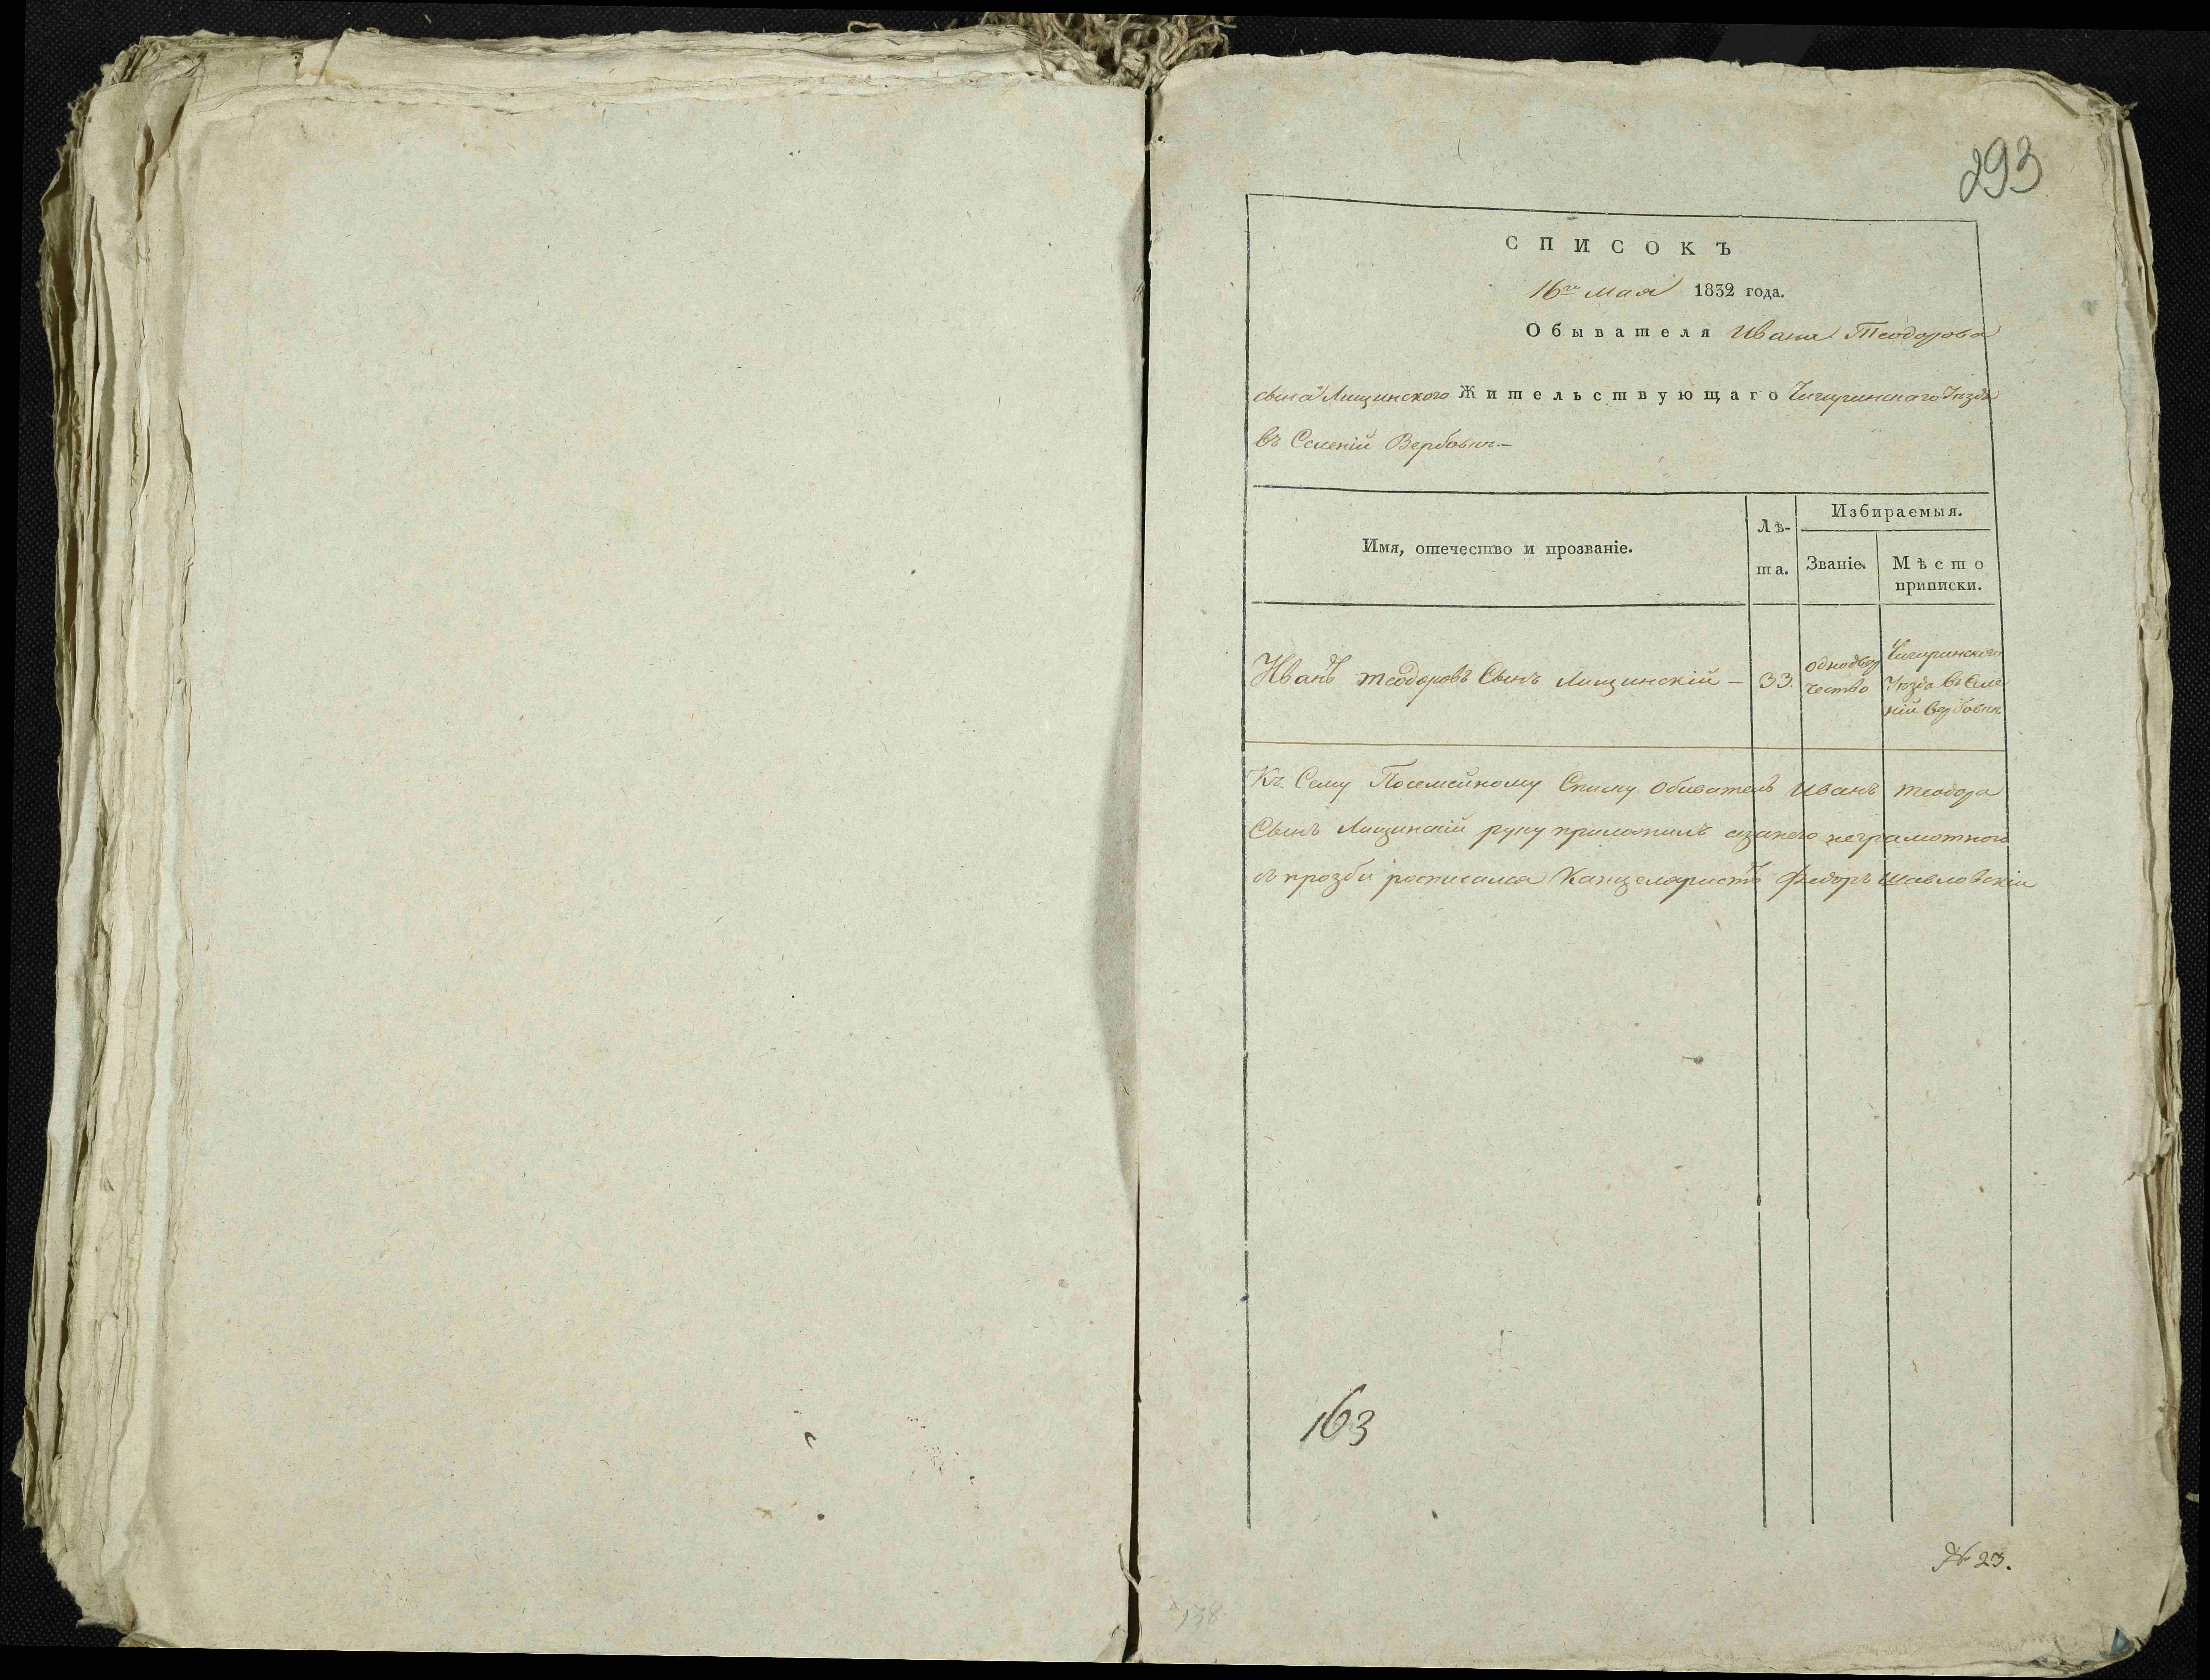 293
СПИСОКЪ
16го Мая 1832 года.
Обывателя Ивана Теодорова
сына Лищинского Жительствующаго Чигиринскаго Уезда
въ Селеній Вербовке.—
Имя, отечество и прозваніе.
Лѣ-
та.
Избираемыя.
Званіе.
Мѣсто
приписки.
Иванъ теодоровъ Сынъ Лищинскій — 33.
однодвор
чество
Чигиринского
Уезда въ Селе
ній Вербовке
Къ Сему Посемейному Списку Обиватель Иванъ теодора
Сынъ Лищинскій руку приложилъ азанего неграмотного
съ прозби росписался Канцеляристъ Федоръ Шавловскій
163
№ 23.
138